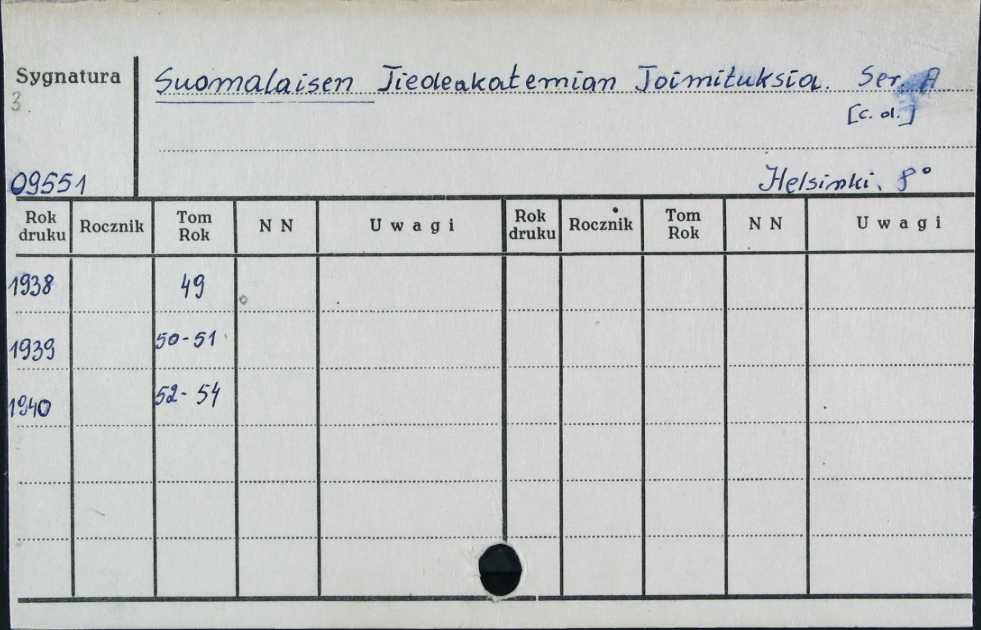 Sygnatura
3.
Suomalaisen Tiedeakatemian Toimituksia. Ser. A
[c. d.]
09551
Helsinki. 8°
Rok druku Rocznik Tom Rok N N Uwagi Rok druku Rocznik Tom Rok N N Uwagi
1938 49
1939 50-51
1940 52-54